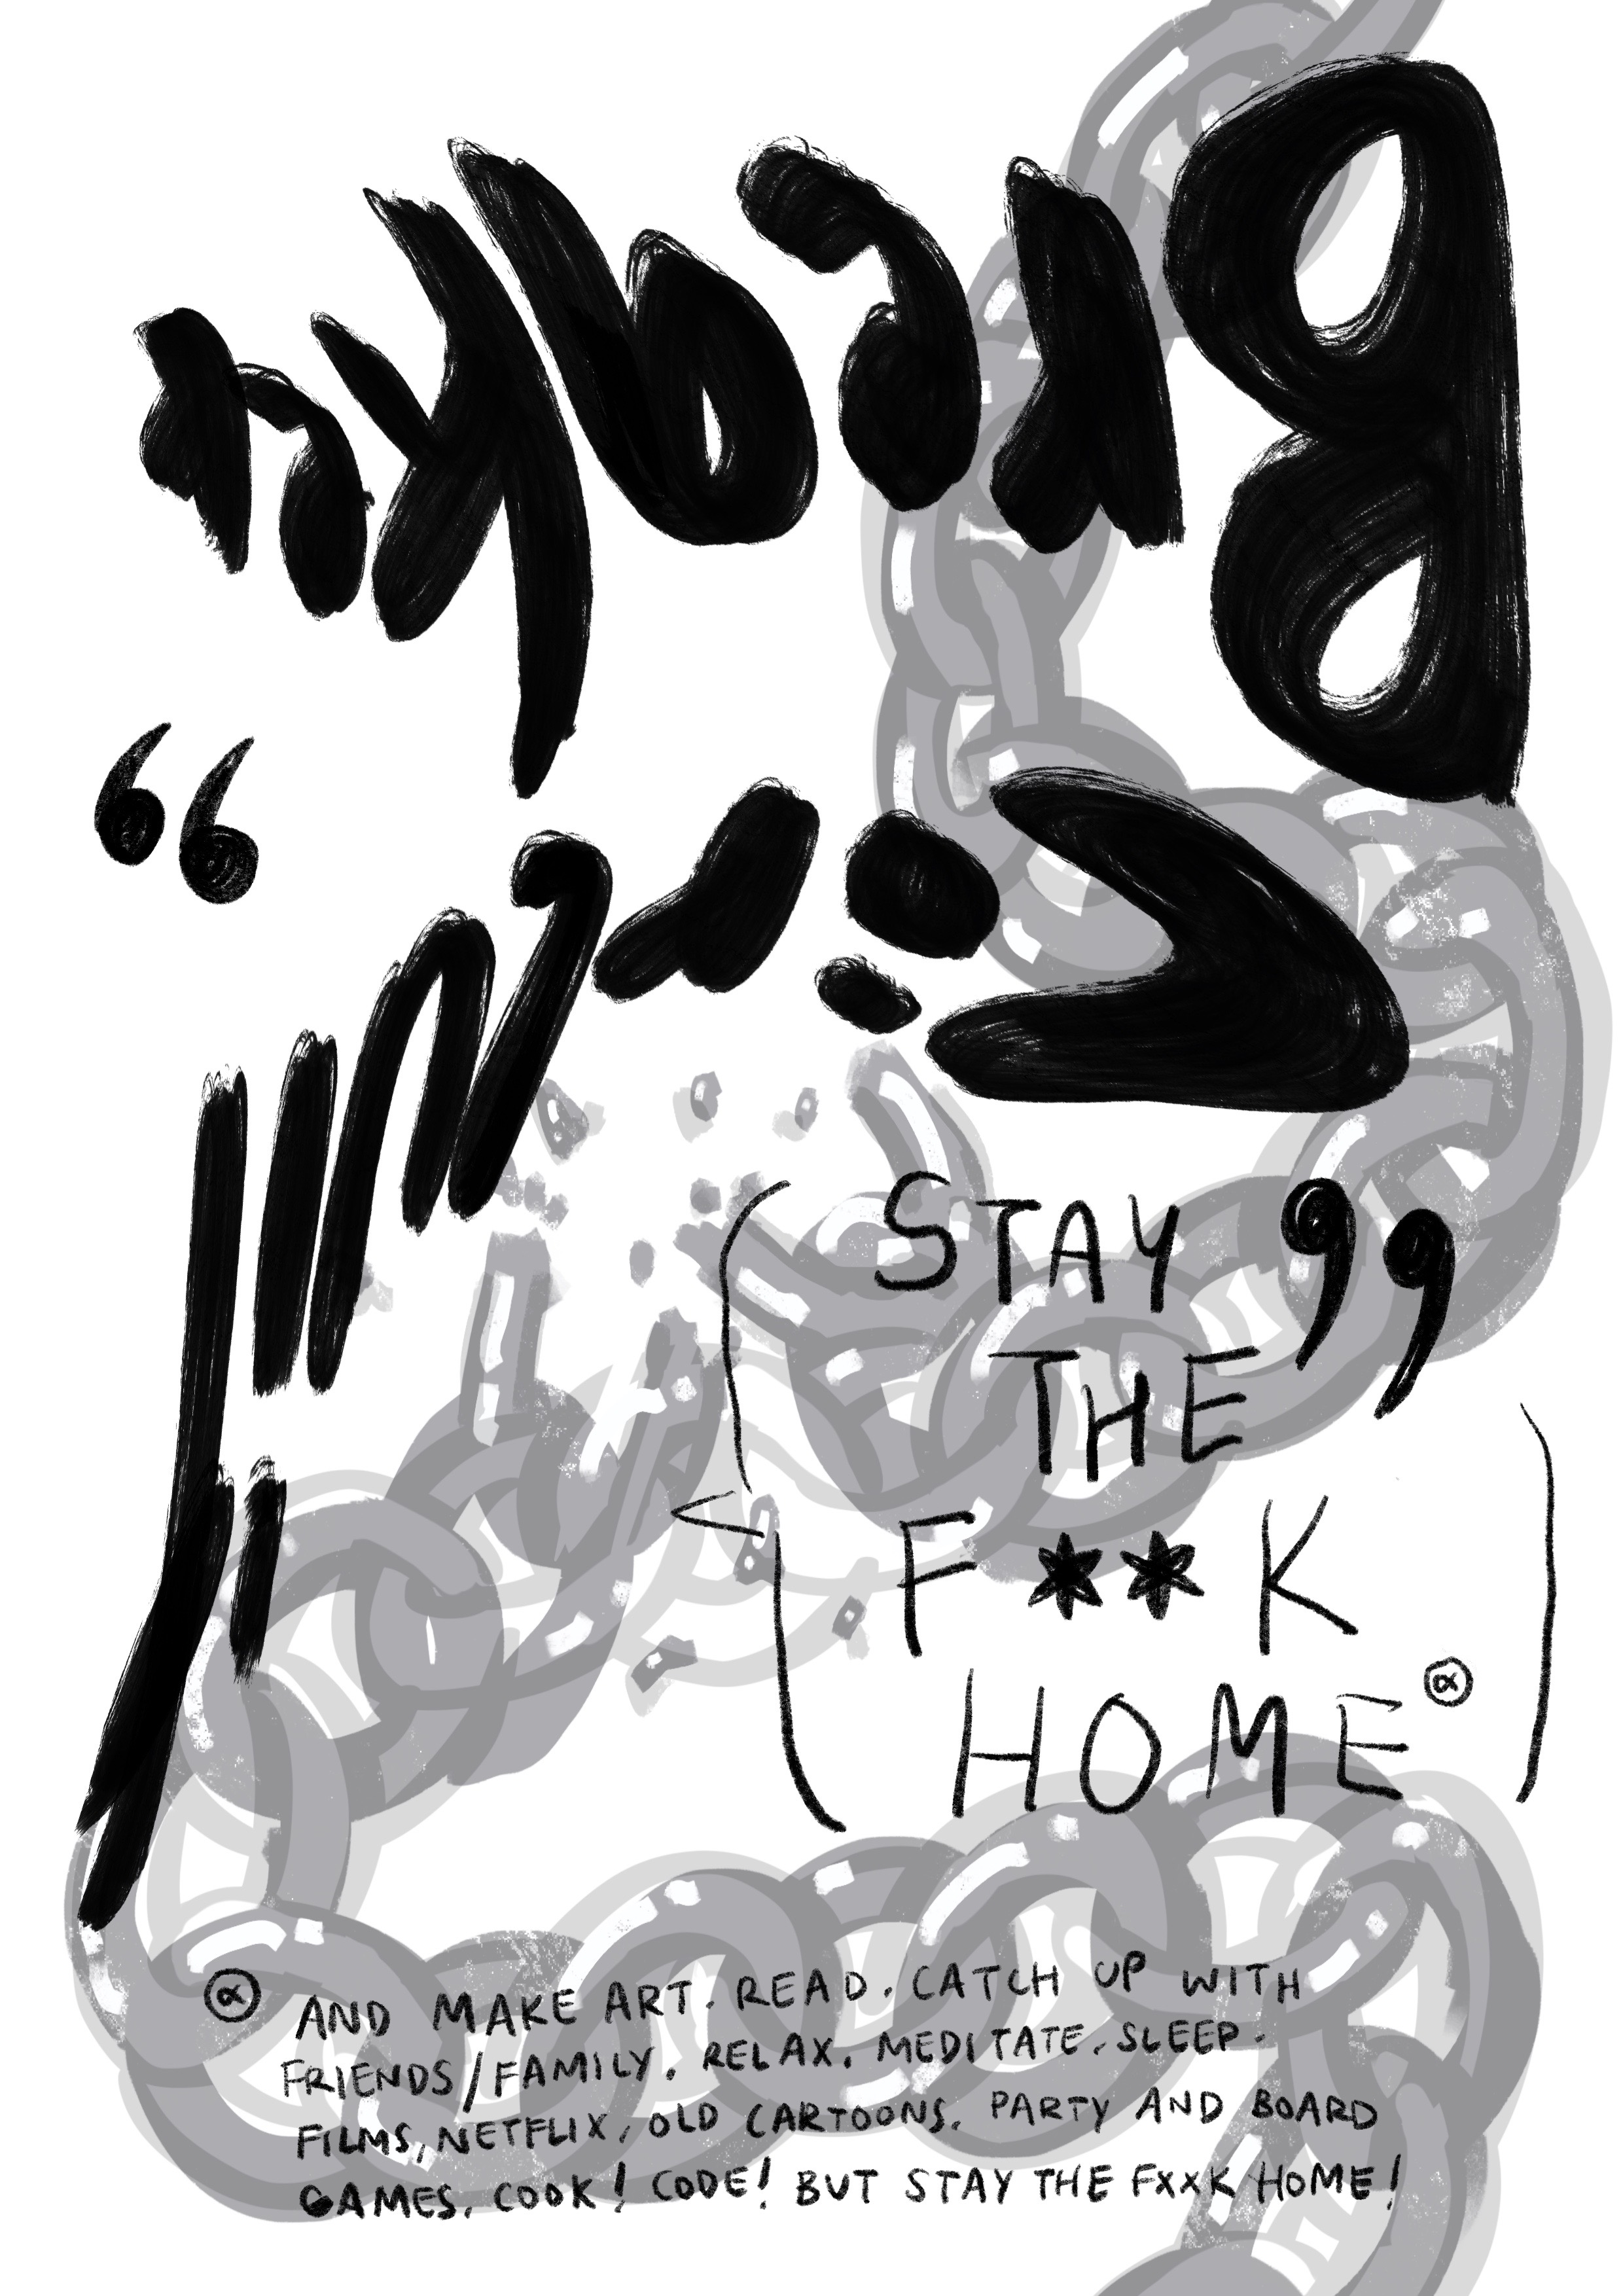 “
STAY ”
THE
F**K
HOME ⍺
⍺ AND MAKE ART. READ. CATCH UP WITH
FRIENDS/FAMILY. RELAX. MEDITATE. SLEEP.
FILMS, NETFLIX, OLD CARTOONS. PARTY AND BOARD
GAMES. COOK! CODE! BUT STAY THE FXXK HOME!